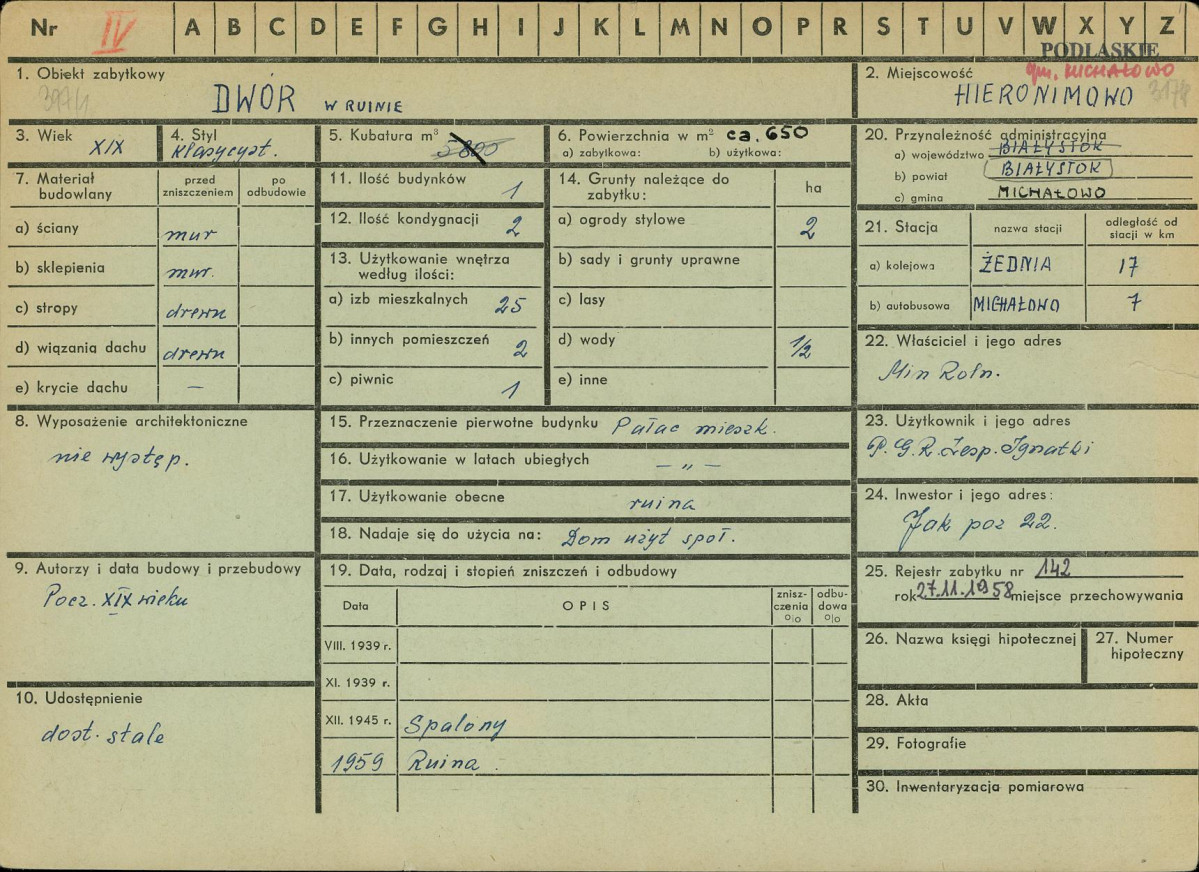 Nr IV A B C D E F G H I J K L M N O P R S T U V W X Y Z
PODLASKIE
gm. MICHAŁOWO
1. Obiekt zabytkowy
DWÓR W RUINIE
2. Miejscowość
HIERONIMOWO
3. Wiek
XIX
4. Styl
klasycyst.
5. Kubatura m³
5800
6. Powierzchnia w m² ca. 650
a) zabytkowa: b) użytkowa:
20. Przynależność administracyjna
a) województwo BIAŁYSTOK
b) powiat BIAŁYSTOK
c) gmina MICHAŁOWO
7. Materiał budowlany
przed zniszczeniem
po odbudowie
a) ściany mur
b) sklepienia mur.
c) stropy drewn
d) wiązania dachu drewn
e) krycie dachu —
11. Ilość budynków 1
12. Ilość kondygnacji 2
13. Użytkowanie wnętrza
według ilości:
a) izb mieszkalnych 25
b) innych pomieszczeń 2
c) piwnic 1
14. Grunty należące do
zabytku:
ha
a) ogrody stylowe 2
b) sady i grunty uprawne
c) lasy
d) wody 1/2
e) inne
21. Stacja
nazwa stacji
odległość od
stacji w km
a) kolejowa ŻEDNIA 17
b) autobusowa MICHAŁOWO 7
22. Właściciel i jego adres
Min Roln.
8. Wyposażenie architektoniczne
nie występ.
15. Przeznaczenie pierwotne budynku Pałac mieszk.
16. Użytkowanie w latach ubiegłych — „ —
17. Użytkowanie obecne ruina
18. Nadaje się do użycia na: Dom użyt społ.
23. Użytkownik i jego adres
P.G.R. Zesp. Ignatki
24. Inwestor i jego adres:
Jak poz 22.
9. Autorzy i data budowy i przebudowy
Pocz. XIX wieku
10. Udostępnienie
dost. stale
19. Data, rodzaj i stopień zniszczeń i odbudowy
Data
OPIS
znisz-
czenia
%
odbu-
dowa
%
VIII. 1939 r.
XI. 1939 r.
XII. 1945 r. Spalony
1959 Ruina.
25. Rejestr zabytku nr 142
rok 27.11.1958 miejsce przechowywania
26. Nazwa księgi hipotecznej
27. Numer
hipoteczny
28. Akta
29. Fotografie
30. Inwentaryzacja pomiarowa